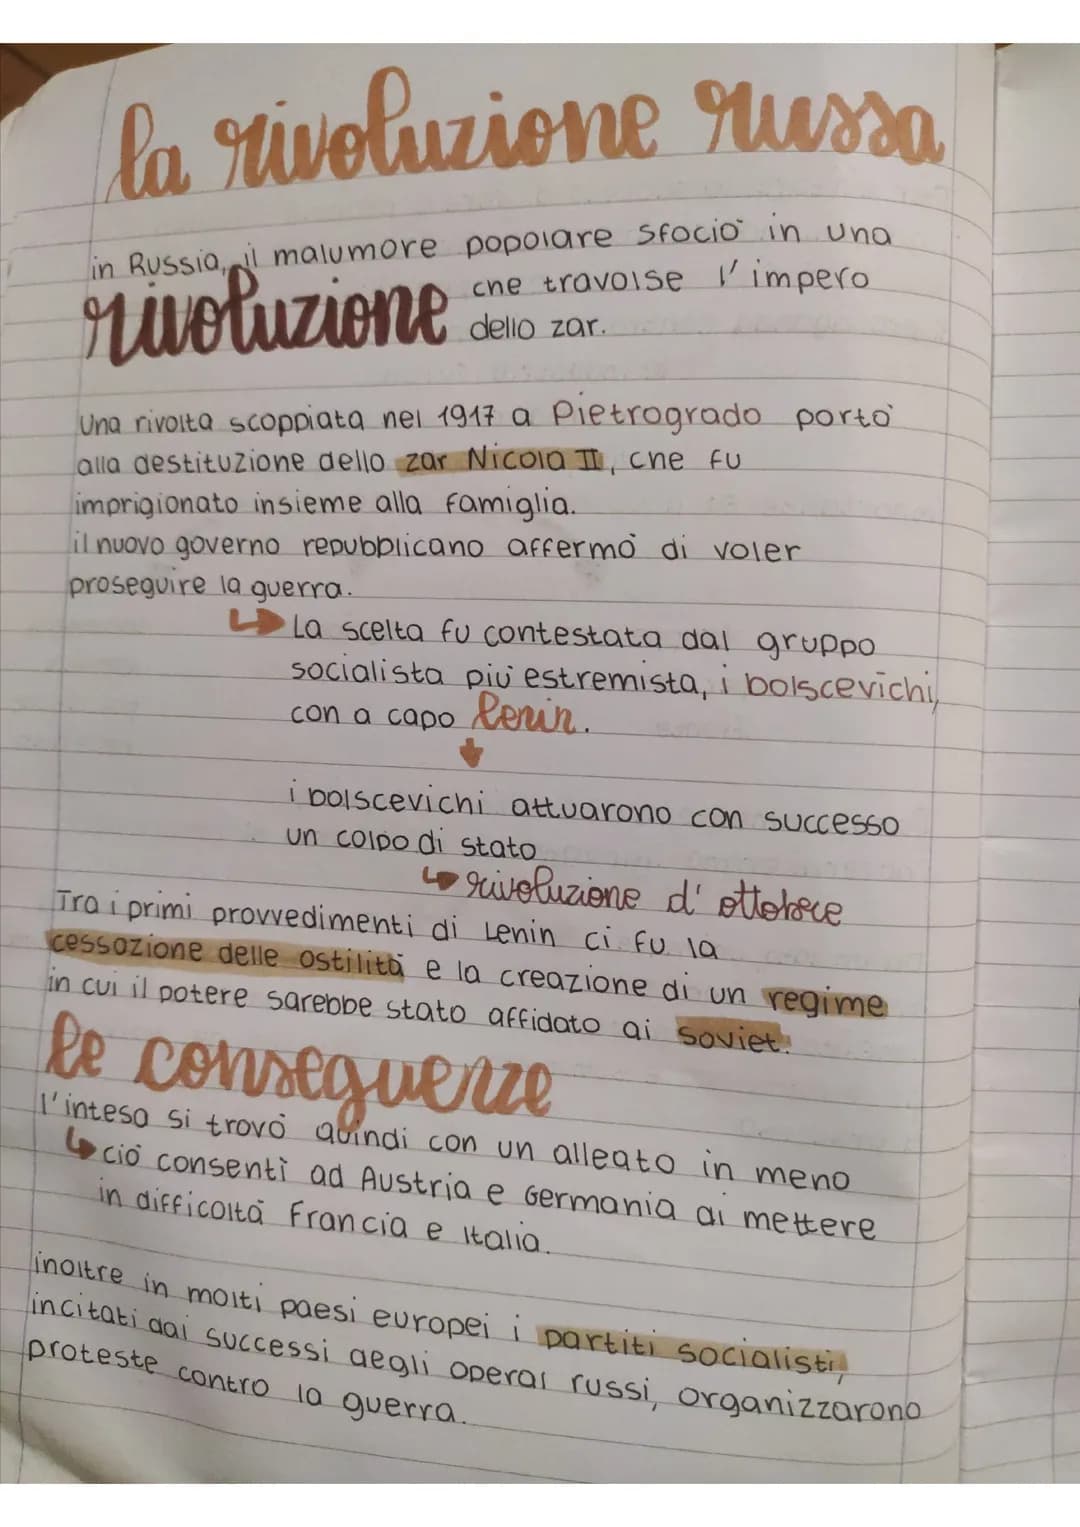 la rivoluzione russa
in Russia, il malumore popolare sfociò in una
rivoluzione che travolse l'impero
dello zar.
Una rivolta scoppiata nel 1917 a Pietrogrado portò
alla destituzione dello zar Nicola II, che fu
imprigionato insieme alla famiglia.
il nuovo governo repubblicano affermò di voler
proseguire la guerra.
↳ La scelta fu contestata dal gruppo
socialista più estremista, i bolscevichi,
con a capo Lenin.
↓
i bolscevichi attuarono con successo
un colpo di stato
↳ rivoluzione d'ottobre
Tra i primi provvedimenti di Lenin ci fu la
cessazione delle ostilità e la creazione di un regime
in cui il potere sarebbe stato affidato ai soviet.
le conseguenze
l'intesa si trovò quindi con un alleato in meno
↳ ciò consentì ad Austria e Germania di mettere
in difficoltà Francia e Italia.
inoltre in molti paesi europei i partiti socialisti,
incitati dai successi degli operai russi, organizzarono
proteste contro la guerra.